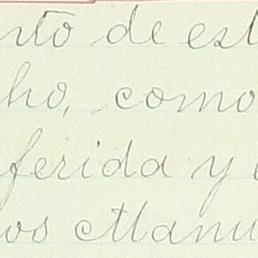 nto de est
ho, como
ferida y
os Manu